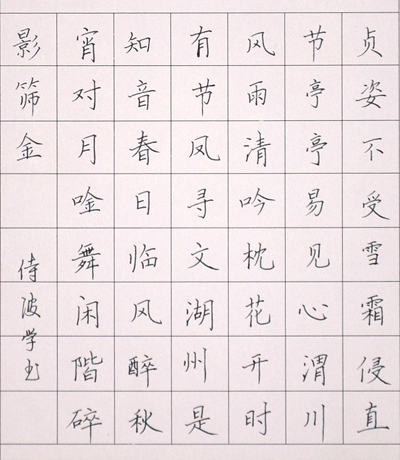 贞姿不受雪霜侵直
节亭亭易见心渭川
风雨清吟枕花开时
有节凤寻文湖州是
知音春日临风醉秋
宵对月唫舞闲階碎
影筛金
侍波学书